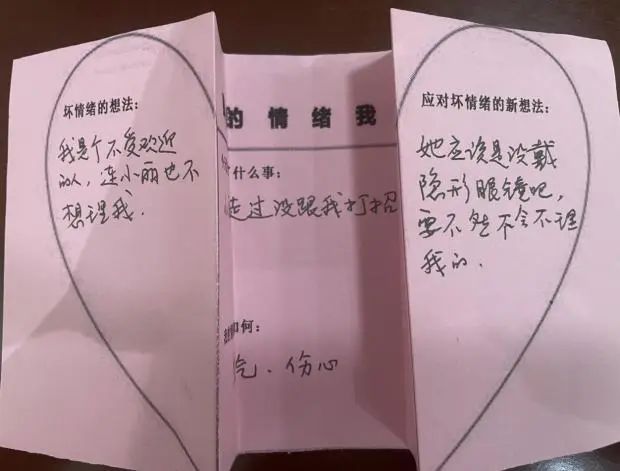 坏情绪的想法：
我是个不受欢迎
的人，连小丽也不
想理我.
的情绪我
什么事：
走过没跟我打招
何：
气、伤心
应对坏情绪的新想法：
她应该是没戴
隐形眼镜吧，
要不然不会不理
我的.